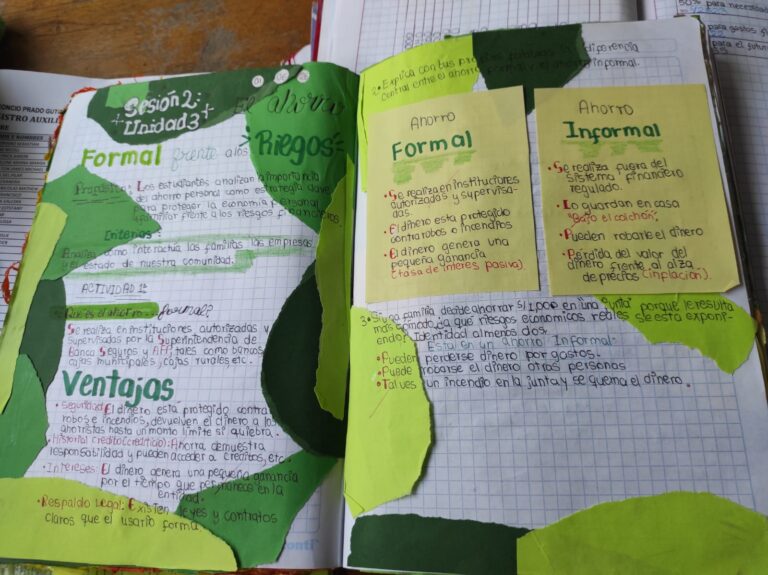 Sesión 2:
Unidad 3
El ahorro
Formal frente a los Riegos
Propósito: Los estudiantes analizan la importancia
del ahorro personal como estrategia clave
para proteger la economía personal
familiar frente a los riesgos financieros.
Interios:
Analiza como interactua las familias las empresas
y el estado de nuestra comunidad.
ACTIVIDAD 1º
Que es el ahorro formal?
Se realiza en instituciones autorizadas y
supervisadas por la Superintendencia de
Banca Seguros y AFP, tales como bancos
cajas municipales, cajas rurales etc.
Ventajas
• Seguridad: El dinero esta protegido contra
robos e incendios, devuelven el dinero a los
ahoristas hasta un monto limite si quiebra.
• Historial credito (crediticio): Ahorra demuestra
responsabilidad y pueden acceder a creditos, etc.
• Intereses: El dinero genera una pequeña ganancia
por el tiempo que permanece en la
entidad.
• Respaldo Legal: Existen leyes y contratos
claros que el usario forma.
2. Explica con tus propias palabras la diferencia
central entre el ahorro formal y el ahorro informal.
Ahorro
Formal
• Se realiza en instituciones
autorizadas y supervisa-
das.
• El dinero esta protegido
contra robos o incendios
• El dinero genera una
pequeña ganancia
(tasa de interes pasiva)
Ahorro
Informal
• Se realiza fuera del
sistema financiero
regulado.
• Lo guardan en casa
"Bajo el colchón".
• Pueden robarte el dinero
• Perdida del valor del
dinero frente al alza
de precios (inflación).
3. Si una familia decide ahorrar S/1,000 en una "junta" porque le resulta
más comoda ¿a qué riesgos economicos reales se esta exponi-
endo? Identidad almenos dos.
Estai en un Ahorro Informal:
• Pueden perderse dinero por gastos.
• Puede robarse el dinero otras personas
• Tal ves un incendio en la junta y se quema el dinero.
50% para necesidad
para gastos
para el futur